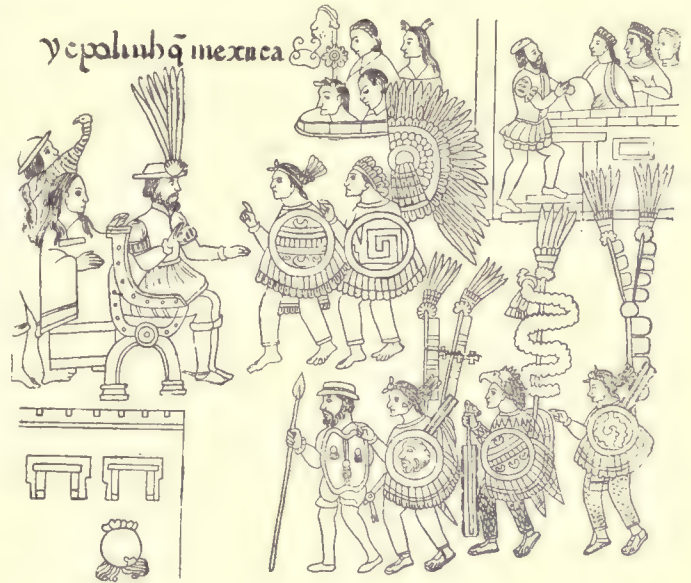 ycpoliuhq̃ mexica